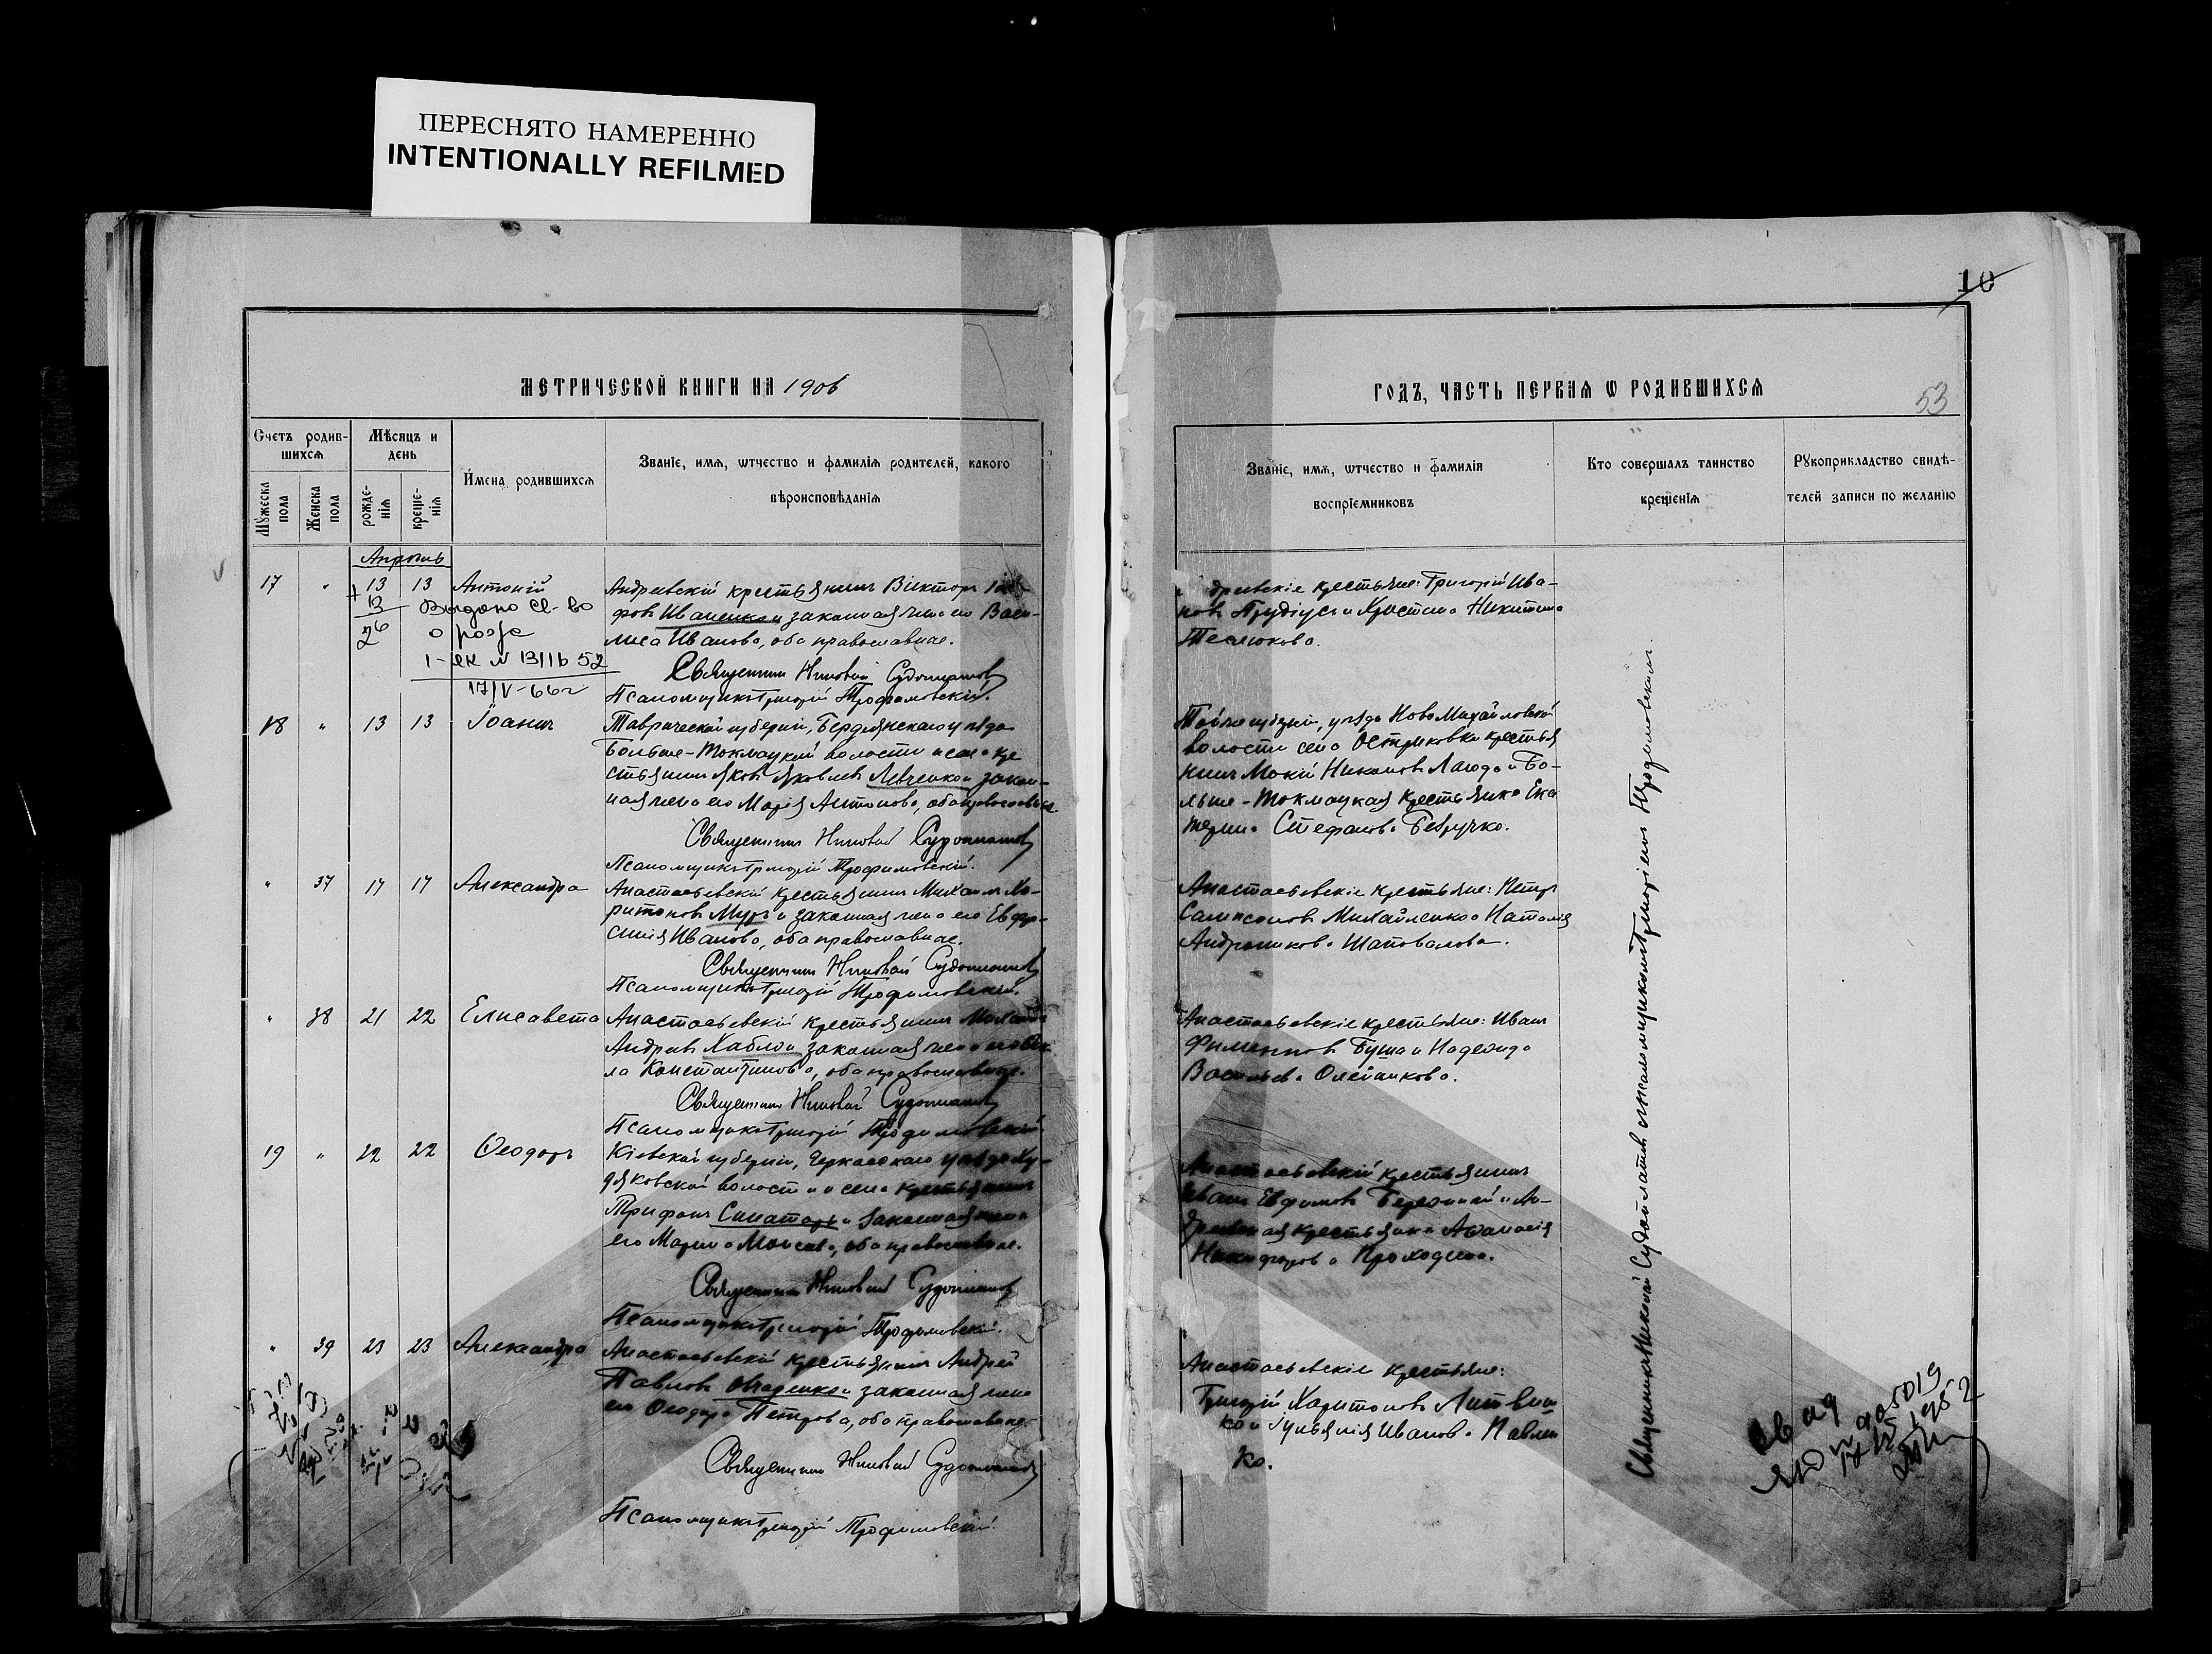 ПЕРЕСНЯТО НАМЕРЕННО
INTENTIONALLY REFILMED
МЕТРИЧЕСКОЙ КНИГИ НА 1906
Счетъ родив-
шихсѧ
Мѣсяцъ и
день
Имена родившихсѧ
Званіе, имѧ, ѡтчество и фамиліѧ родителей, какого
вѣроисповѣданіѧ
Мꙋжеска
пола
Женска
пола
рожде-
ніѧ
креще-
ніѧ
Апрѣль
17 " 13 13 Антоній
Андреевскій крестьянинъ Викторъ
фовъ Иваненко и законная жена его Васи-
лиса Иванова, оба православные.
13
26
Выдано св-во
о рожд
17/V-66г
Священникъ Николай Судоплатовъ
Псаломщикъ Григорій Трофимовскій.
18 " 13 13 Іоаннъ
Таврической губерніи, Бердянскаго уѣзда
Больше-Токмацкой волости и села кре
стьянинъ Яковъ Яковлевъ Левченко и закон-
ная жена его Марія Антонова, оба православные.
Священникъ Николай Судоплатовъ
Псаломщикъ Григорій Трофимовскій.
" 37 17 17 Александра
Анастасьевскій крестьянинъ Михаилъ Ха-
ритоновъ Мургъ и законная жена его Евфро-
синія Иванова, оба православные.
Священникъ Николай Судоплатовъ
Псаломщикъ Григорій Трофимовскій.
" 38 21 22 Елисавета
Анастасьевскій крестьянинъ Михаилъ
Андреевъ Хабло и законная жена его
ла Константинова, оба православные.
Священникъ Николай Судоплатовъ
Псаломщикъ Григорій Трофимовскій
19 " 22 22 Ѳеодоръ
Кіевской губерніи, Черкасскаго уѣзда Ху-
дяковской волости и села крестьянинъ
Трифонъ Синаторъ и законная жена
его Марина Моисеева, оба православные.
Священникъ Николай Судоплатовъ
Псаломщикъ Григорій Трофимовскій.
" 39 23 23 Александра
Анастасьевскій крестьянинъ Андрей
Павловъ Овчаренко и законная жена
его Ѳеодора Петрова, оба православные.
Священникъ Николай Судоплатовъ
Псаломщикъ Григорій Трофимовскій.
10
ГОДЪ, ЧАСТЬ ПЕРВАѦ Ѡ РОДИВШИХСѦ
53
Званіе, имѧ, ѡтчество и фамиліѧ
воспріемниковъ
Кто совершалъ таинство
крещеніѧ
Рꙋкоприкладство свидѣ-
телей записи по желанію
дреевскіе крестьяне: Григорій Ива-
новъ Прудіусъ и Христина Никитина
Теслюкова.
уѣзда Ново Михайловской
волости села Остриковки крестья
нинъ Мокій Никоновъ Лагода и Бо-
льше-Токмацкая крестьянка Ека
терина Стефанова Безручко.
Анастасьевскіе крестьяне: Петръ
Сампсоновъ Михайленко и Наталія
Андроникова Шаповалова.
Анастасьевскіе крестьяне: Иванъ
Филипповъ Буша и Надежда
Васильева Олейникова.
Анастасьевскій крестьянинъ
Иванъ Евфимовъ Бережный и Ан-
дреевская крестьянка Аѳанасія
Никифорова Проходина.
Анастасьевскіе крестьяне:
Григорій Харитоновъ Литвин
ко и Іуліанія Иванова Павлен
ко.
Священникъ Николай Судоплатовъ съ псаломщикомъ Григоріемъ Трофимовскимъ
1952